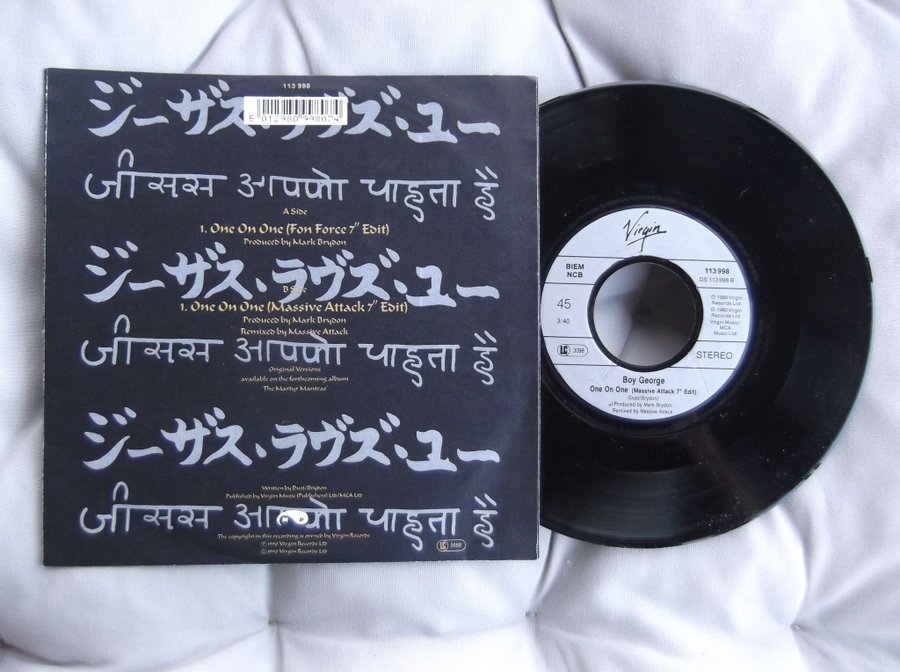 113 998
ジーザス・ラヴズ・ユー
5 012980 998074
जीसस आपको चाहता है
A Side
1. One On One (Fon Force 7" Edit)
Produced by Mark Brydon
ジーザス・ラヴズ・ユー
B Side
1. One On One (Massive Attack 7" Edit)
Produced by Mark Brydon
Remixed by Massive Attack
जीसस आपको चाहता है
Original Versions
available on the forthcoming album
'The Martyr Mantras'
ジーザス・ラヴズ・ユー
Written by Dust/Brydon
Published by Virgin Music (Publishers) Ltd/MCA Ltd
जीसस आपको चाहता है
The copyright in this recording is owned by Virgin Records
℗ 1990 Virgin Records Ltd
© 1990 Virgin Records Ltd
LC 3098
Virgin
BIEM
NCB
113 998
DS 113 998 B
45
3:40
℗ 1990 Virgin
Records Ltd
© 1990 Virgin
Records Ltd
Virgin Music/
MCA
Music Ltd
LC 3098
STEREO
Boy George
One On One (Massive Attack 7" Edit)
(Dust/Brydon)
Produced by Mark Brydon
Remixed by Massive Attack